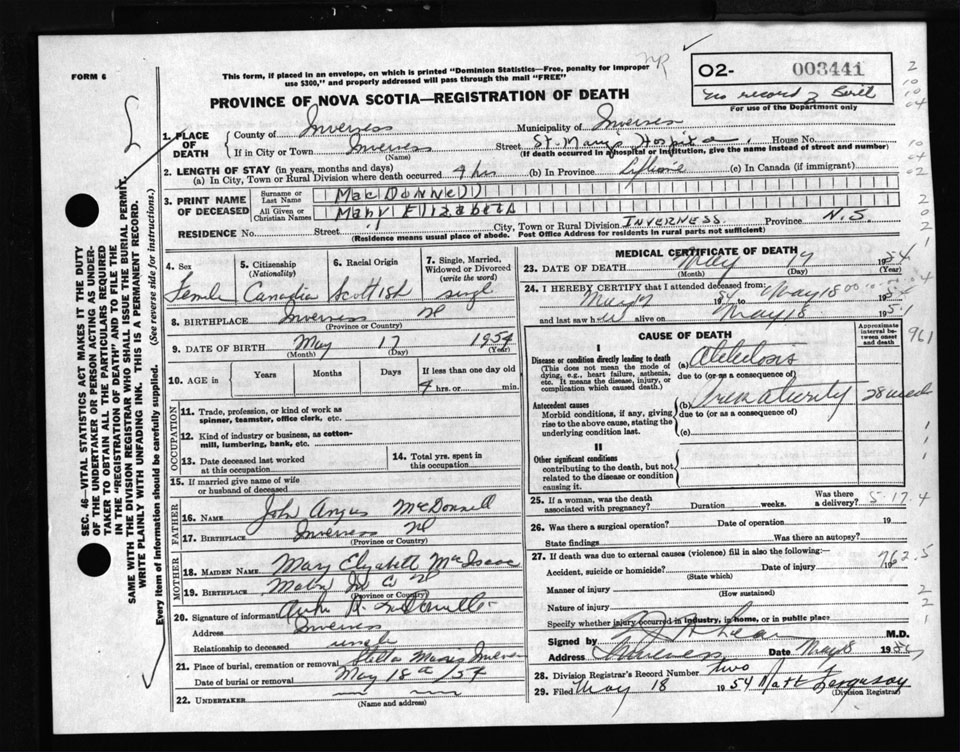 FORM 6
This form, if placed in an envelope, on which is printed "Dominion Statistics—Free, penalty for improper
use $300," and properly addressed will pass through the mail "FREE"
NR
O2- 003441
No record of Birth
For use of the Department only
PROVINCE OF NOVA SCOTIA—REGISTRATION OF DEATH
1. PLACE OF DEATH
County of Inverness Municipality of Inverness
If in City or Town Inverness (Name) Street St. Mary's Hospital House No.
(If death occurred in a hospital or institution, give the name instead of street and number)
2. LENGTH OF STAY (in years, months and days)
(a) In City, Town or Rural Division where death occurred 4 hrs (b) In Province Lifetime (c) In Canada (if immigrant)
3. PRINT NAME OF DECEASED
Surname or Last Name MacDonnell
All Given or Christian Names Mary Elizabeth
RESIDENCE No. Street City, Town or Rural Division INVERNESS Province N.S.
(Residence means usual place of abode. Post Office Address for residents in rural parts not sufficient)
4. Sex
Female
5. Citizenship (Nationality)
Canadia
6. Racial Origin
Scottish
7. Single, Married, Widowed or Divorced (write the word)
singl
8. BIRTHPLACE Inverness NS
(Province or Country)
9. DATE OF BIRTH May 17 1954
(Month) (Day) (Year)
10. AGE in Years Months Days If less than one day old
4 hrs. or min.
OCCUPATION
11. Trade, profession, or kind of work as
spinner, teamster, office clerk, etc.
12. Kind of industry or business, as cotton-
mill, lumbering, bank, etc.
13. Date deceased last worked
at this occupation
14. Total yrs. spent in
this occupation
15. If married give name of wife
or husband of deceased
FATHER
16. NAME John Angus McDonnell
17. BIRTHPLACE Inverness NS
(Province or Country)
MOTHER
18. MAIDEN NAME Mary Elizabeth MacIsaac
19. BIRTHPLACE
(Province or Country)
20. Signature of informant
Address Inverness
Relationship to deceased uncle
21. Place of burial, cremation or removal Stella Maris Inverness
Date of burial or removal May 18th/54
22. UNDERTAKER
(Name and address)
MEDICAL CERTIFICATE OF DEATH
23. DATE OF DEATH May 17 1954
(Month) (Day) (Year)
24. I HEREBY CERTIFY that I attended deceased from:
May 17 1954 to May 18 195
and last saw h alive on May 18 195
CAUSE OF DEATH
Approximate interval between onset and death
I
Disease or condition directly leading to death
(This does not mean the mode of
dying, e.g., heart failure, asthenia,
etc. It means the disease, injury, or
complication which caused death.)
(a) Atelectosis
due to (or as a consequence of)
Antecedent causes
Morbid conditions, if any, giving
rise to the above cause, stating the
underlying condition last.
(b) Prematurity 28 weeks
due to (or as a consequence of)
(c)
II
Other significant conditions
contributing to the death, but not
related to the disease or condition
causing it.
25. If a woman, was the death
associated with pregnancy? Duration weeks. Was there a delivery?
5-17.4
26. Was there a surgical operation? Date of operation 19
State findings Was there an autopsy?
27. If death was due to external causes (violence) fill in also the following:—
Accident, suicide or homicide? Date of injury 19
(State which)
762.5
Manner of injury
(How sustained)
Nature of injury
Specify whether injury occurred in industry, in home, or in public place
Signed by M.D.
Address Inverness Date May 18 195
28. Division Registrar's Record Number two
29. Filed May 18 1954 Matt Ferguson
(Division Registrar)
961
SEC. 46—VITAL STATISTICS ACT MAKES IT THE DUTY
OF THE UNDERTAKER OR PERSON ACTING AS UNDER-
TAKER TO OBTAIN ALL THE PARTICULARS REQUIRED
IN THE "REGISTRATION OF DEATH" AND TO FILE THE
SAME WITH THE DIVISION REGISTRAR WHO SHALL ISSUE THE BURIAL PERMIT.
WRITE PLAINLY WITH UNFADING INK. THIS IS A PERMANENT RECORD.
Every item of information should be carefully supplied. (See reverse side for instructions.)